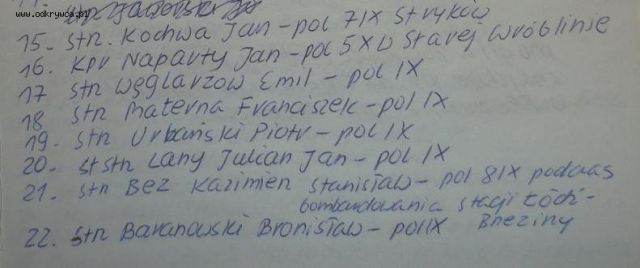 www.odkrywca.pl
15. Stn. Kochwa Jan - pol 7 IX Stryków
16. Kpr Naparty Jan - pol 5 X w Starej Wróblinie
17 Stn Węglarzów Emil - pol IX
18 Stn Materna Franciszek - pol IX
19. Stn Urbański Piotr - pol IX
20. St stn Lany Julian Jan - pol IX
21. Stn Bez Kazimierz Stanisław - pol 8 IX podczas
bombardowania stacji Łódź -
22. Stn Baranowski Bronisław - pol IX Brzeziny